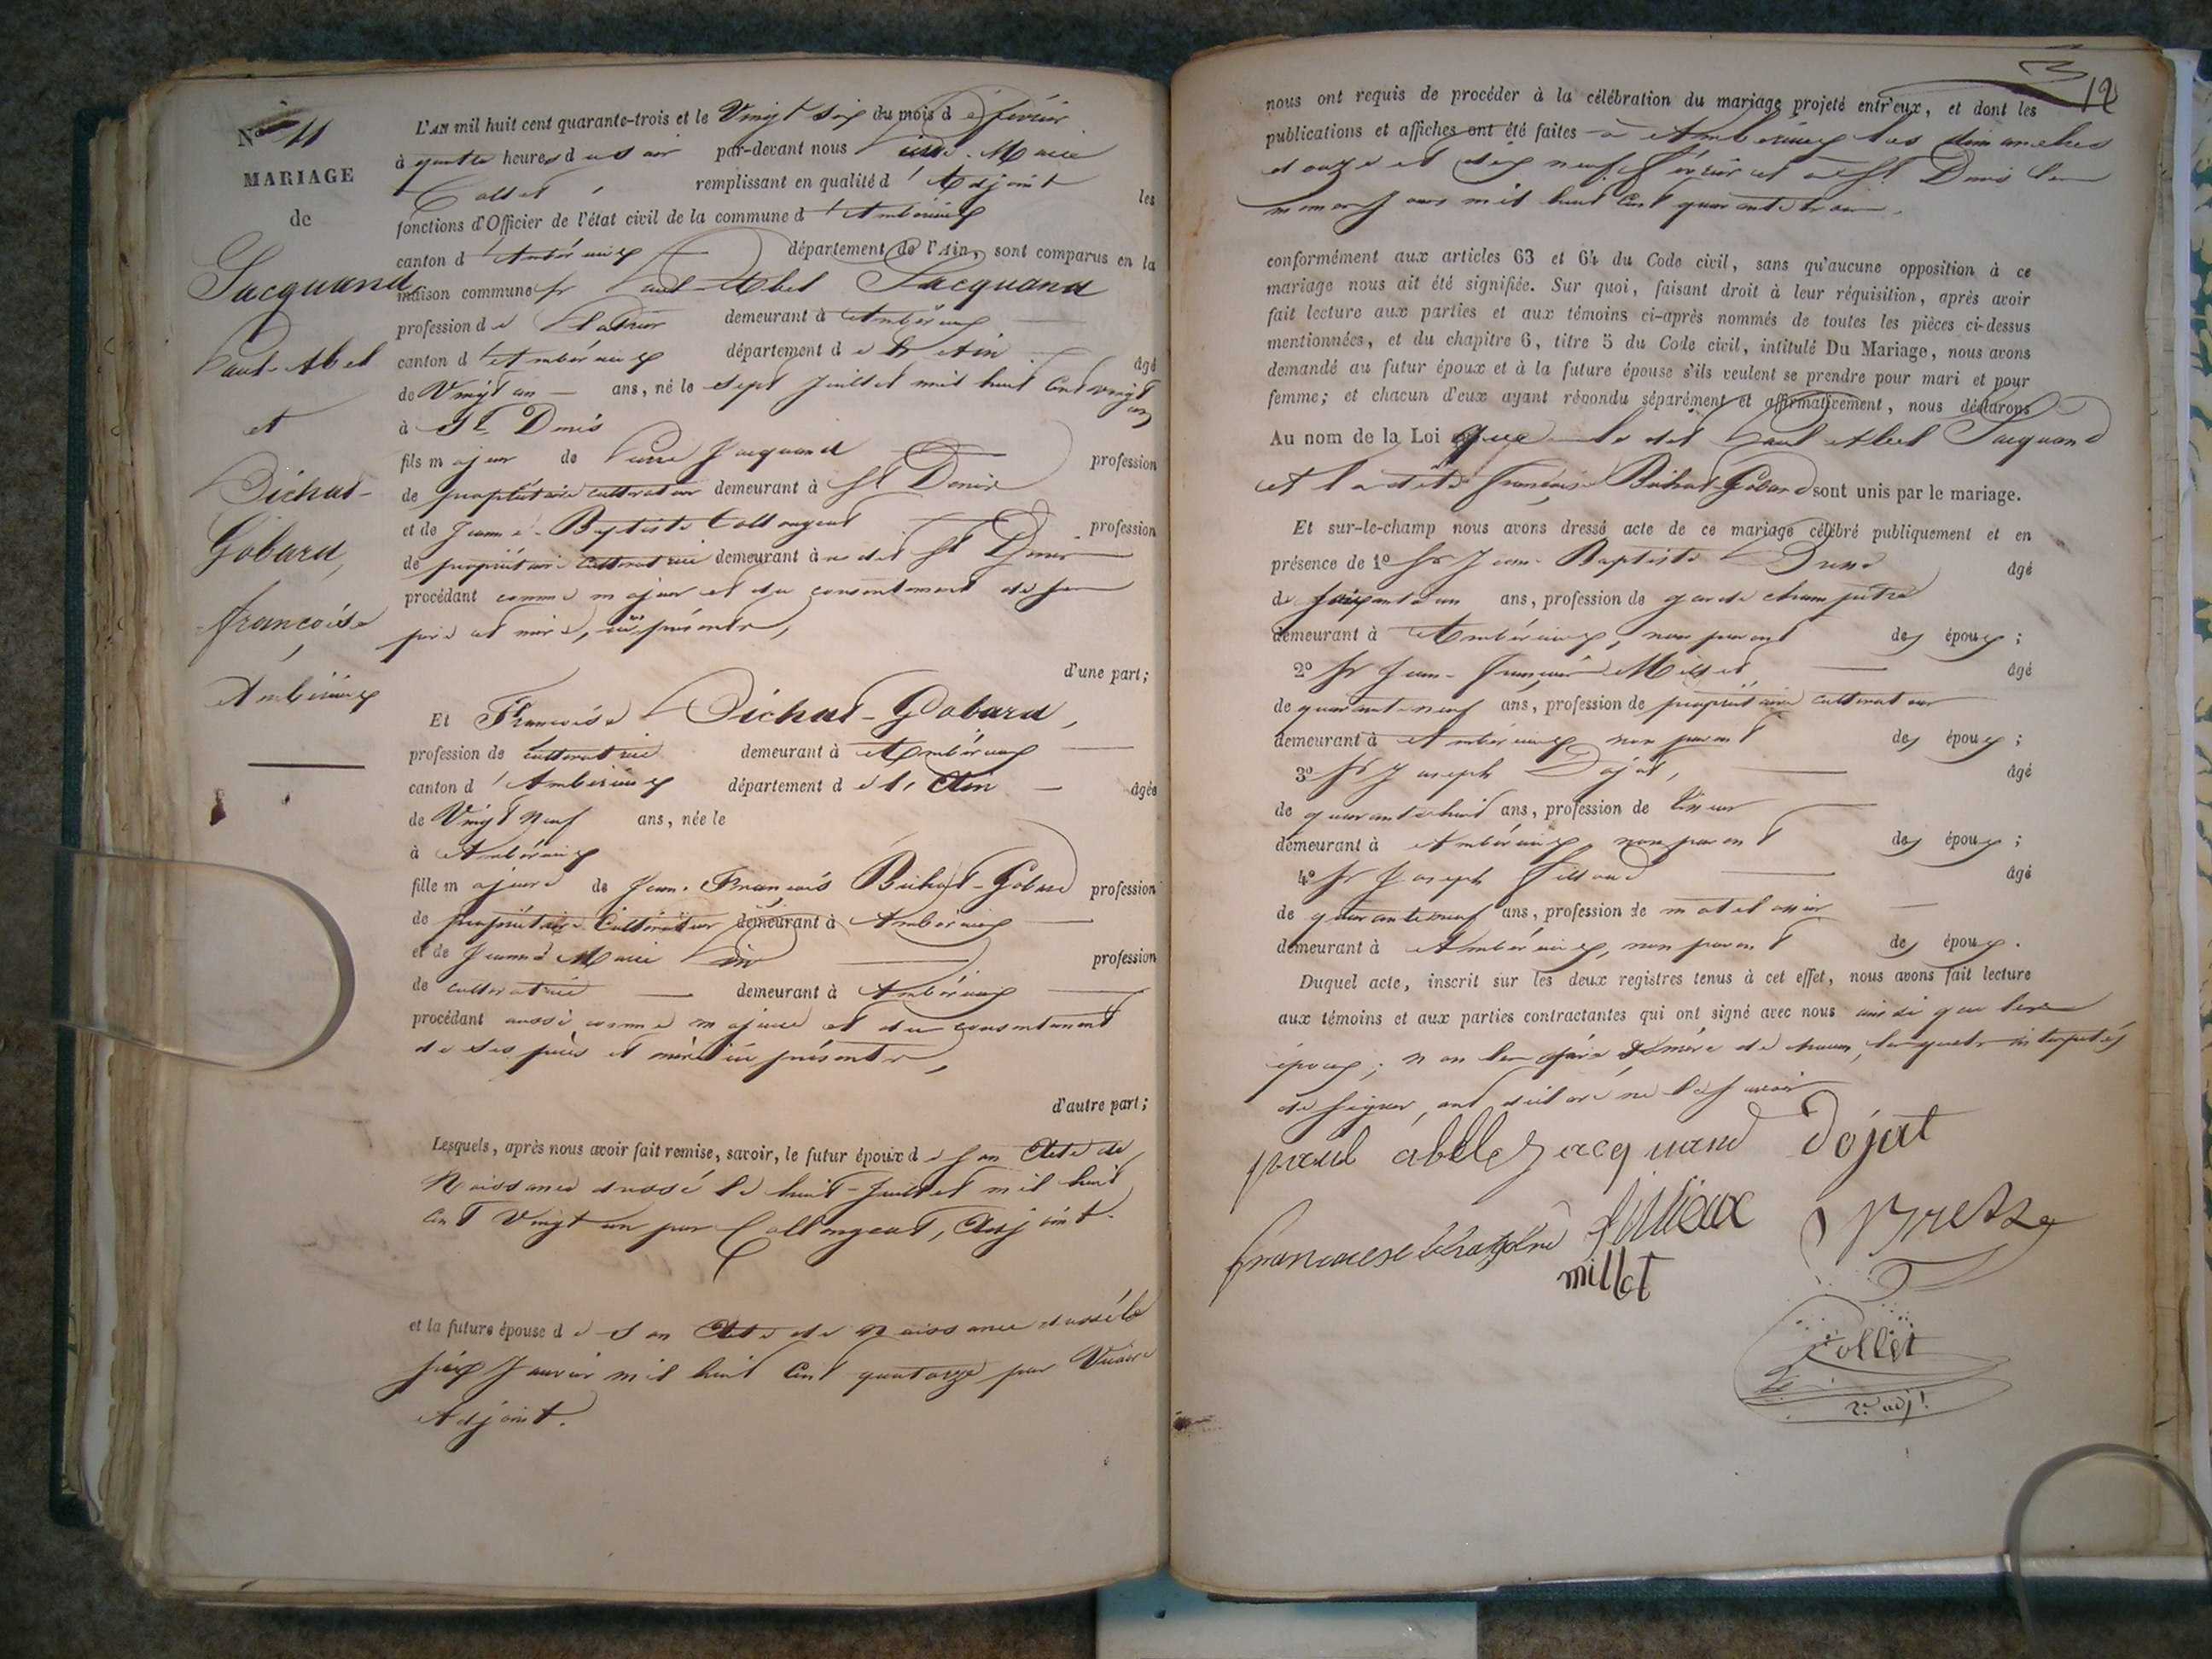 No 11
MARIAGE
de
Jacquand
Paul-Abel
et
Bichat-
Gobard,
françoise
Ambérieux
L'AN mil huit cent quarante-trois et le Vingt six du mois de février
à quatre heures du soir par-devant nous Marie
Collet remplissant en qualité d'Adjoint les
fonctions d'Officier de l'état civil de la commune d'Ambérieux
canton d'Ambérieux département de l'Ain, sont comparus en la
maison commune sr Paul-Abel Jacquand
profession de demeurant à Ambérieux
canton d'Ambérieux département de l'Ain âgé
de Vingt un ans, né le sept Juillet mil huit Cent vingt
un
à St Denis
fils majeur de Pierre Jacquand profession
de propriétaire cultivateur demeurant à St Denis
et de Jeanne-Baptiste Collongeat profession
de propriétaire cultivatrice demeurant à St Denis
procédant comme majeur et du consentement de ses
père et mère, ici présents,
d'une part;
Et Françoise Bichat-Gobard,
profession de cultivatrice demeurant à Ambérieux
canton d'Ambérieux département de l'Ain âgée
de Vingt Neuf ans, née le
à Ambérieux
fille majeure de Jean-François Bichat-Gobard profession
de propriétaire Cultivateur demeurant à Ambérieux
et de Jeanne Marie profession
de cultivatrice demeurant à Ambérieux
procédant aussi comme majeure et du consentement
de ses père et mère ici présents,
d'autre part;
Lesquels, après nous avoir fait remise, savoir, le futur époux de son Acte de
Naissance dressé le huit Juillet mil huit
Cent Vingt un par Collongeat, Adjoint.
et la future épouse de son Acte de Naissance dressé le
six Janvier mil huit Cent quatorze par
Adjoint.
12
nous ont requis de procéder à la célébration du mariage projeté entr'eux, et dont les
publications et affiches ont été faites à Ambérieux les dimanches
douze et dix neuf février et à St Denis les
mêmes Jours mil huit Cent quarante trois.
conformément aux articles 63 et 64 du Code civil, sans qu'aucune opposition à ce
mariage nous ait été signifiée. Sur quoi, faisant droit à leur réquisition, après avoir
fait lecture aux parties et aux témoins ci-après nommés de toutes les pièces ci-dessus
mentionnées, et du chapitre 6, titre 5 du Code civil, intitulé Du Mariage, nous avons
demandé au futur époux et à la future épouse s'ils veulent se prendre pour mari et pour
femme; et chacun d'eux ayant répondu séparément et affirmativement, nous déclarons
Au nom de la Loi que le dit Paul Abel Jacquand
et la dite françoise Bichat-Gobard sont unis par le mariage.
Et sur-le-champ nous avons dressé acte de ce mariage célébré publiquement et en
présence de 1º Sr Jean-Baptiste âgé
de soixante un ans, profession de garde champêtre
demeurant à Ambérieux, non parent des époux;
2º Sr Jean-François Millet âgé
de quarante neuf ans, profession de propriétaire cultivateur
demeurant à Ambérieux non parent des époux;
3º Sr Joseph Dojat, âgé
de quarante huit ans, profession de
demeurant à Ambérieux, non parent des époux;
4º Sr Joseph âgé
de quarante neuf ans, profession de matelassier
demeurant à Ambérieux, non parent des époux.
Duquel acte, inscrit sur les deux registres tenus à cet effet, nous avons fait lecture
aux témoins et aux parties contractantes qui ont signé avec nous ainsi que les
époux; non les père & mère de chacun, lesquels interpelés
de signer, ont déclaré ne le savoir
paul abelle jacquand Dojat
millet
Collet
2e adjt